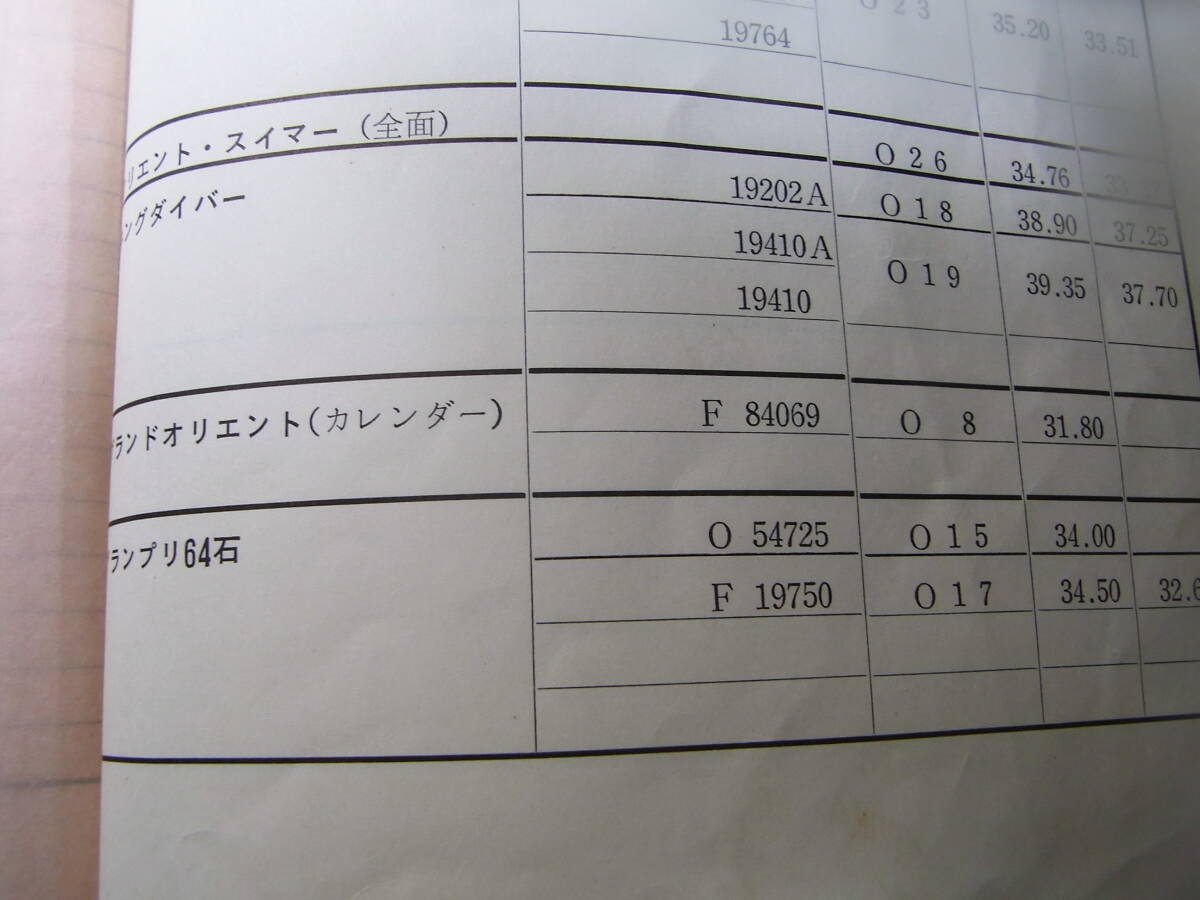 19764 O 23 35.20 33.51
リエント・スイマー (全面) O 26 34.76
ングダイバー 19202A O 18 38.90 37.25
19410A O 19 39.35 37.70
19410
ランドオリエント(カレンダー) F 84069 O 8 31.80
ランプリ64石 O 54725 O 15 34.00
F 19750 O 17 34.50 32.6